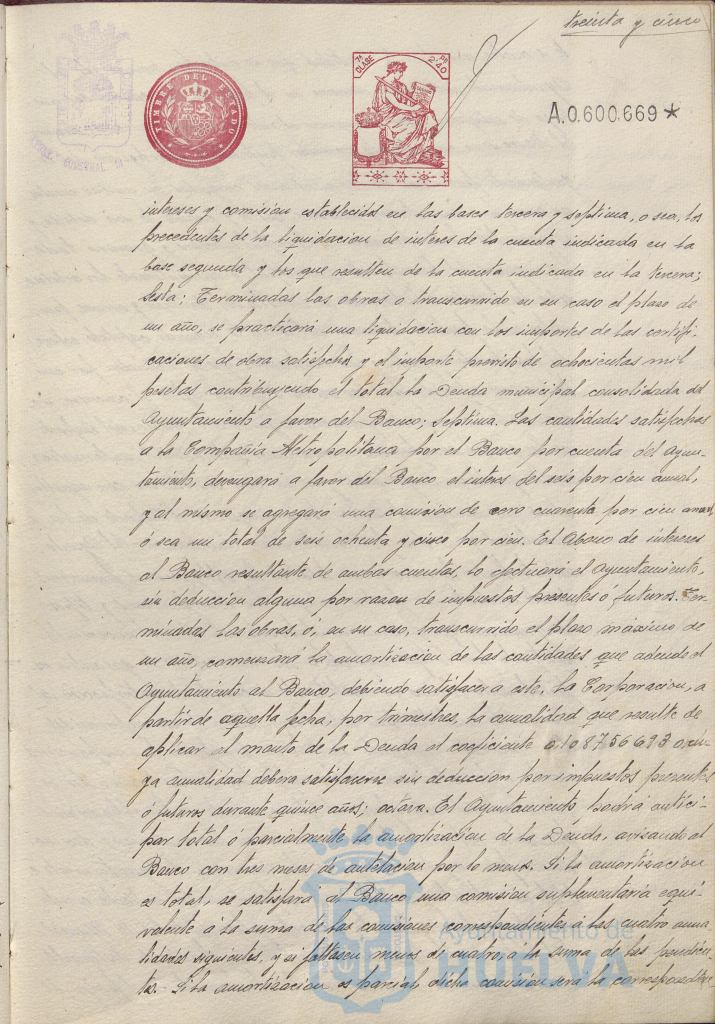 treinta y cinco
TIMBRE DEL ESTADO
7ª CLASE
Pts 2'40
A.0.600.669 *
intereses y comision establecidos en las bases tercera y septima, o sea, los
precedentes de la liquidacion de interes de la cuenta indicada en la
base segunda y los que resulten de la cuenta indicada en la tercera;
Sesta; Terminadas las obras o transcurrido en su caso el plazo de
un año, se practicará una liquidacion con los importes de las certifi-
caciones de obra satisfechas y el importe previsto de ochocientas mil
pesetas contribuyendo el total la Deuda municipal consolidada del
Ayuntamiento a favor del Banco; Septima. Las cantidades satisfechas
a la Compañia Metropolitana por el Banco por cuenta del ayun-
tamiento, devengará a favor del Banco el interes del seis por cien anual,
y al mismo se agregará una comision de cero cuarenta por cien anual
ó sea un total de seis ochenta y cinco por cien. El abono de intereses
al Banco resultante de ambas cuentas, lo efectuará el Ayuntamiento,
sin deduccion alguna por razon de impuestos presentes ó futuros. Ter-
minadas las obras, ó, en su caso, transcurrido el plazo máximo de
un año, comenzará la amortizacion de las cantidades que adeude el
Ayuntamiento al Banco, debiendo satisfacer a este, la Corporacion, a
partir de aquella fecha, por trimestres, la anualidad que resulte de
aplicar al monto de la Deuda el coeficiente 0,108756693
ya anualidad debera satisfacerse sin deduccion por impuestos presentes
ó futuros durante quince años; octava. El Ayuntamiento podrá antici-
par total ó parcialmente la amortizacion de la Deuda, avisando al
Banco con tres meses de antelacion por lo menos. Si la amortizacion
es total, se satisfará al Banco una comision suplementaria equi-
valente á la suma de las comisiones correspondientes á las cuatro anua-
lidades siguientes, y si faltasen menos de cuatro, a la suma de las pendien-
tes. Si la amortizacion es parcial, dicha comision será la correspondiente
Ayuntamiento de
HUELVA